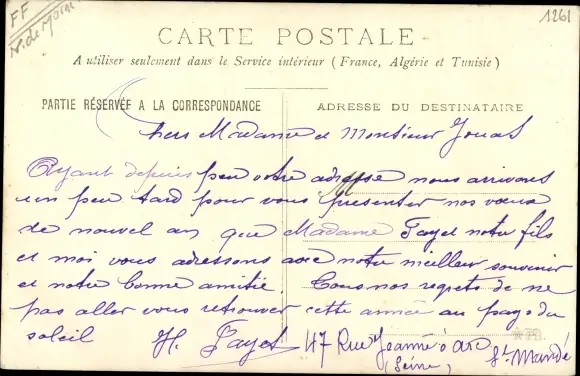 FF
1261
CARTE POSTALE
A utiliser seulement dans le Service intérieur (France, Algérie et Tunisie)
PARTIE RÉSERVÉE A LA CORRESPONDANCE
ADRESSE DU DESTINATAIRE
Chers Madame et Monsieur
Ayant depuis peu votre adresse nous arrivons
un peu tard pour vous présenter nos vœux
de nouvel an que Madame Fayet notre fils
et moi vous adressons avec notre meilleur souvenir
et notre bonne amitié. Tous nos regrets de ne
pas aller vous retrouver cette année au pays du
soleil H. Fayet 47 Rue Jeanne d'arc St Mandé
(Seine)